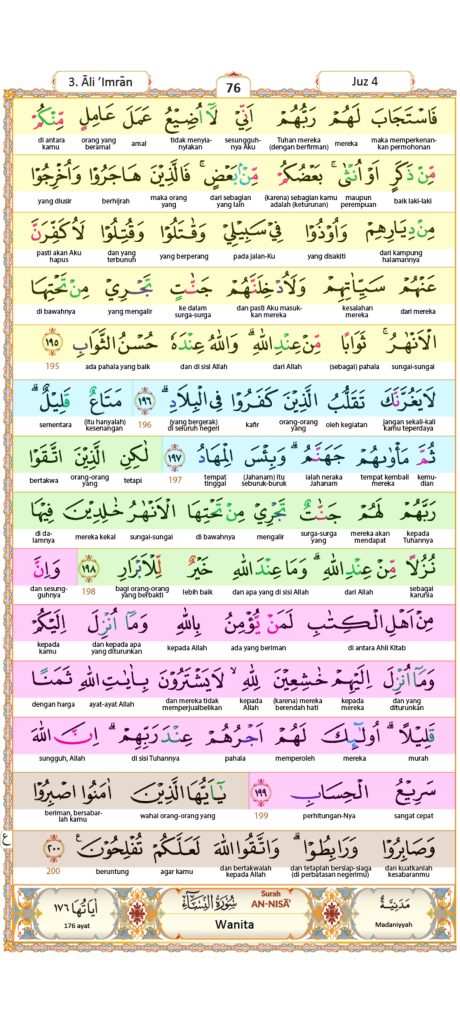 3. Āli 'Imrān
76
Juz 4
فَاسْتَجَابَ لَهُمْ رَبُّهُمْ اَنِّيْ لَآ اُضِيْعُ عَمَلَ عَامِلٍ مِّنْكُمْ
maka memperkenankan permohonan mereka Tuhan mereka (dengan berfirman) sesungguhnya Aku tidak menyia-nyiakan amal orang yang beramal di antara kamu
مِّنْ ذَكَرٍ اَوْ اُنْثٰىۚ بَعْضُكُمْ مِّنْۢ بَعْضٍۚ فَالَّذِيْنَ هَاجَرُوْا وَاُخْرِجُوْا
baik laki-laki maupun perempuan (karena) sebagian kamu adalah (keturunan) dari sebagian yang lain maka orang yang berhijrah yang diusir
مِنْ دِيَارِهِمْ وَاُوْذُوْا فِيْ سَبِيْلِيْ وَقٰتَلُوْا وَقُتِلُوْا لَاُكَفِّرَنَّ
dari kampung halamannya yang disakiti pada jalan-Ku yang berperang dan yang terbunuh pasti akan Aku hapus
عَنْهُمْ سَيِّاٰتِهِمْ وَلَاُدْخِلَنَّهُمْ جَنّٰتٍ تَجْرِيْ مِنْ تَحْتِهَا
dari mereka kesalahan mereka dan pasti Aku masukkan mereka ke dalam surga-surga yang mengalir di bawahnya
الْاَنْهٰرُۚ ثَوَابًا مِّنْ عِنْدِ اللّٰهِۗ وَاللّٰهُ عِنْدَهٗ حُسْنُ الثَّوَابِ ١٩٥
sungai-sungai (sebagai) pahala dari Allah dan di sisi Allah ada pahala yang baik 195
لَا يَغُرَّنَّكَ تَقَلُّبُ الَّذِيْنَ كَفَرُوْا فِى الْبِلَادِۗ ١٩٦ مَتَاعٌ قَلِيْلٌۗ
jangan sekali-kali kamu teperdaya oleh kegiatan orang-orang kafir (yang bergerak) di seluruh negeri 196 (itu hanyalah) kesenangan sementara
ثُمَّ مَأْوٰىهُمْ جَهَنَّمُۗ وَبِئْسَ الْمِهَادُ ١٩٧ لٰكِنِ الَّذِيْنَ اتَّقَوْا
kemudian tempat kembali mereka ialah neraka Jahanam (Jahanam) itu seburuk-buruk tempat tinggal 197 tetapi orang-orang yang bertakwa
رَبَّهُمْ لَهُمْ جَنّٰتٌ تَجْرِيْ مِنْ تَحْتِهَا الْاَنْهٰرُ خٰلِدِيْنَ فِيْهَا
kepada Tuhannya mereka akan mendapat surga-surga yang mengalir di bawahnya sungai-sungai mereka kekal di dalamnya
نُزُلًا مِّنْ عِنْدِ اللّٰهِۗ وَمَا عِنْدَ اللّٰهِ خَيْرٌ لِّلْاَبْرَارِ ١٩٨ وَاِنَّ
sebagai karunia dari Allah dan apa yang di sisi Allah lebih baik bagi orang-orang yang berbakti 198 dan sesungguhnya
مِنْ اَهْلِ الْكِتٰبِ لَمَنْ يُّؤْمِنُ بِاللّٰهِ وَمَآ اُنْزِلَ اِلَيْكُمْ
di antara Ahli Kitab ada yang beriman kepada Allah dan kepada apa yang diturunkan kepada kamu
وَمَآ اُنْزِلَ اِلَيْهِمْ خٰشِعِيْنَ لِلّٰهِۙ لَا يَشْتَرُوْنَ بِاٰيٰتِ اللّٰهِ ثَمَنًا
dan yang diturunkan kepada mereka (karena) mereka berendah hati kepada Allah dan mereka tidak memperjualbelikan ayat-ayat Allah dengan harga
قَلِيْلًاۗ اُولٰۤىِٕكَ لَهُمْ اَجْرُهُمْ عِنْدَ رَبِّهِمْۗ اِنَّ اللّٰهَ
murah mereka memperoleh pahala di sisi Tuhannya sungguh, Allah
سَرِيْعُ الْحِسَابِ ١٩٩ يٰٓاَيُّهَا الَّذِيْنَ اٰمَنُوا اصْبِرُوْا
sangat cepat perhitungan-Nya 199 wahai orang-orang yang beriman, bersabarlah kamu
وَصَابِرُوْا وَرَابِطُوْاۗ وَاتَّقُوا اللّٰهَ لَعَلَّكُمْ تُفْلِحُوْنَ ٢٠٠
ع
dan kuatkanlah kesabaranmu dan tetaplah bersiap-siaga (di perbatasan negerimu) dan bertakwalah kepada Allah agar kamu beruntung 200
مَدَنِيَّةٌ
Madaniyyah
سُوْرَةُ النِّسَاۤءِ
Surah AN-NISĀ'
Wanita
اٰيَاتُهَا ١٧٦
176 ayat